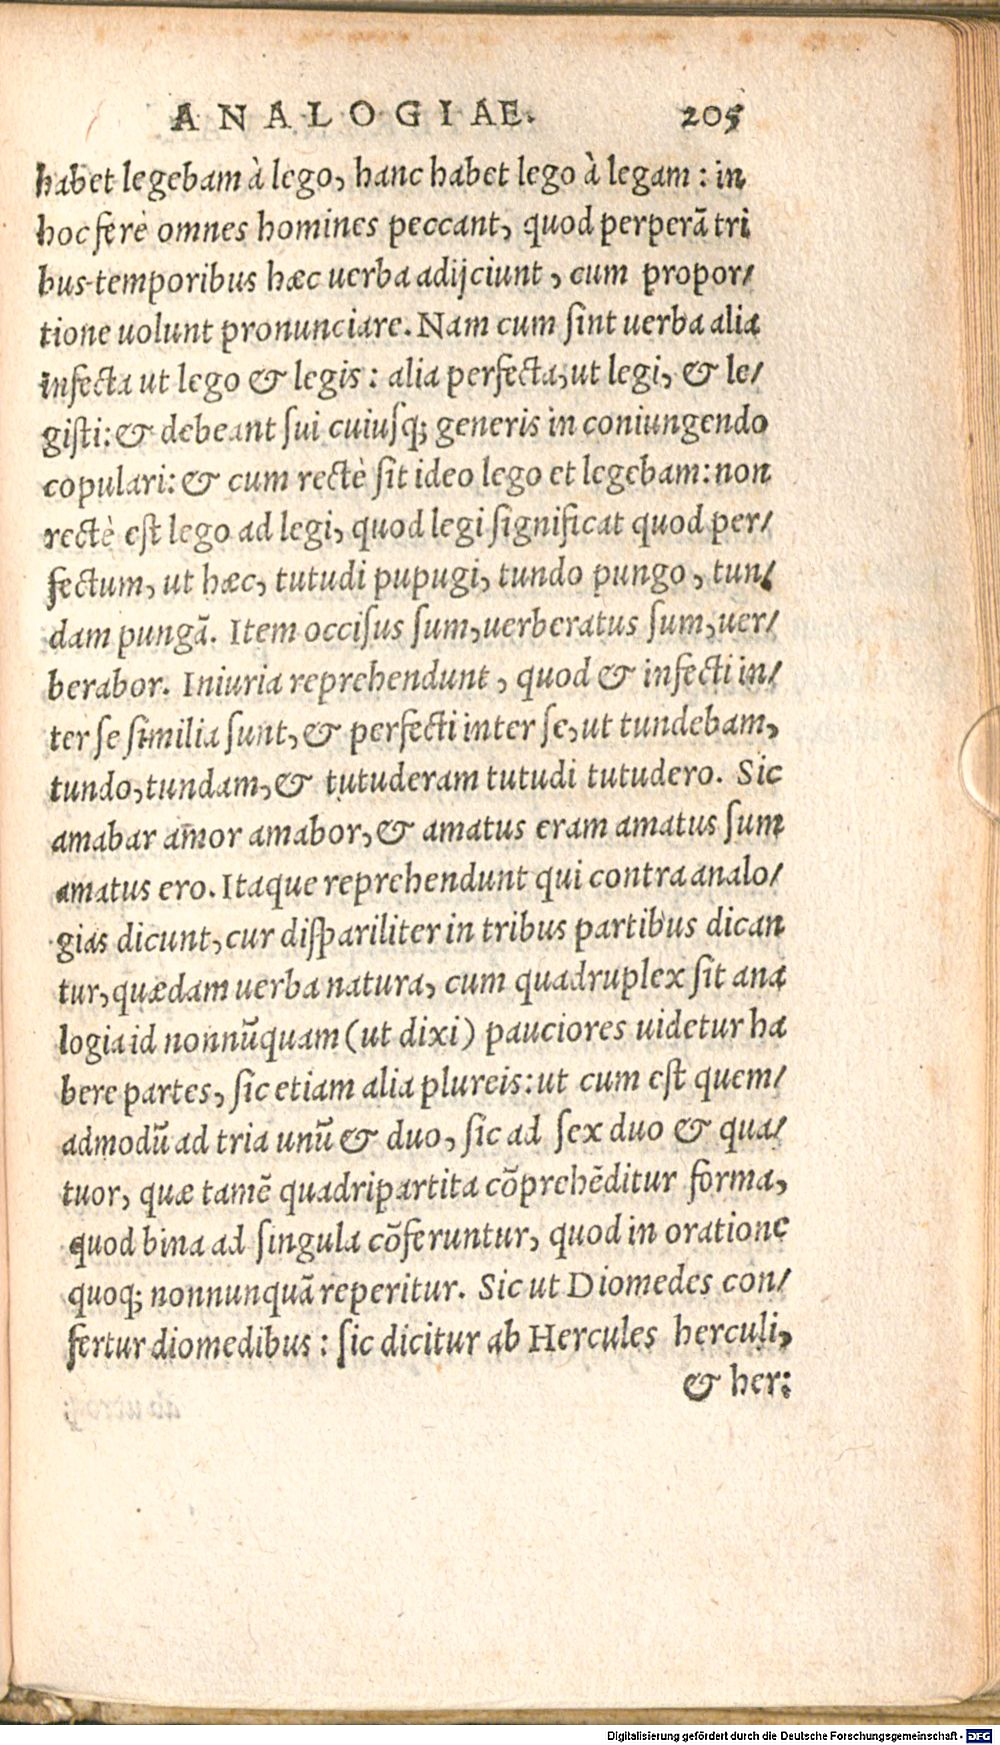 ANALOGIAE. 205
habet legebam à lego, hanc habet lego à legam : in
hoc ferè omnes homines peccant, quod perperã tri
bus temporibus hæc uerba adijciunt , cum propor/
tione uolunt pronunciare. Nam cum ſint uerba alia
infecta ut lego & legis : alia perfecta, ut legi, & le/
giſti: & debeant ſui cuiuſq; generis in coniungendo
copulari: & cum rectè ſit ideo lego et legebam: non
rectè eſt lego ad legi, quod legi ſignificat quod per/
fectum, ut hæc, tutudi pupugi, tundo pungo , tun/
dam pungã. Item occiſus ſum, uerberatus ſum, uer/
berabor. Iniuria reprehendunt , quod & infecti in/
ter ſe ſimilia ſunt, & perfecti inter ſe, ut tundebam,
tundo, tundam, & tutuderam tutudi tutudero. Sic
amabar amor amabor, & amatus eram amatus ſum
amatus ero. Itaque reprehendunt qui contra analo/
gias dicunt, cur diſpariliter in tribus partibus dican
tur, quædam uerba natura, cum quadruplex ſit ana
logia id nonnũquam (ut dixi) pauciores uidetur ha
bere partes, ſic etiam alia plureis: ut cum eſt quem/
admodũ ad tria unũ & duo, ſic ad ſex duo & qua/
tuor, quæ tamẽ quadripartita cõprehẽditur forma,
quod bina ad ſingula cõferuntur, quod in oratione
quoq; nonnunquã reperitur. Sic ut Diomedes con/
fertur diomedibus : ſic dicitur ab Hercules herculi,
& her:
Digitalisierung gefördert durch die Deutsche Forschungsgemeinschaft - DFG